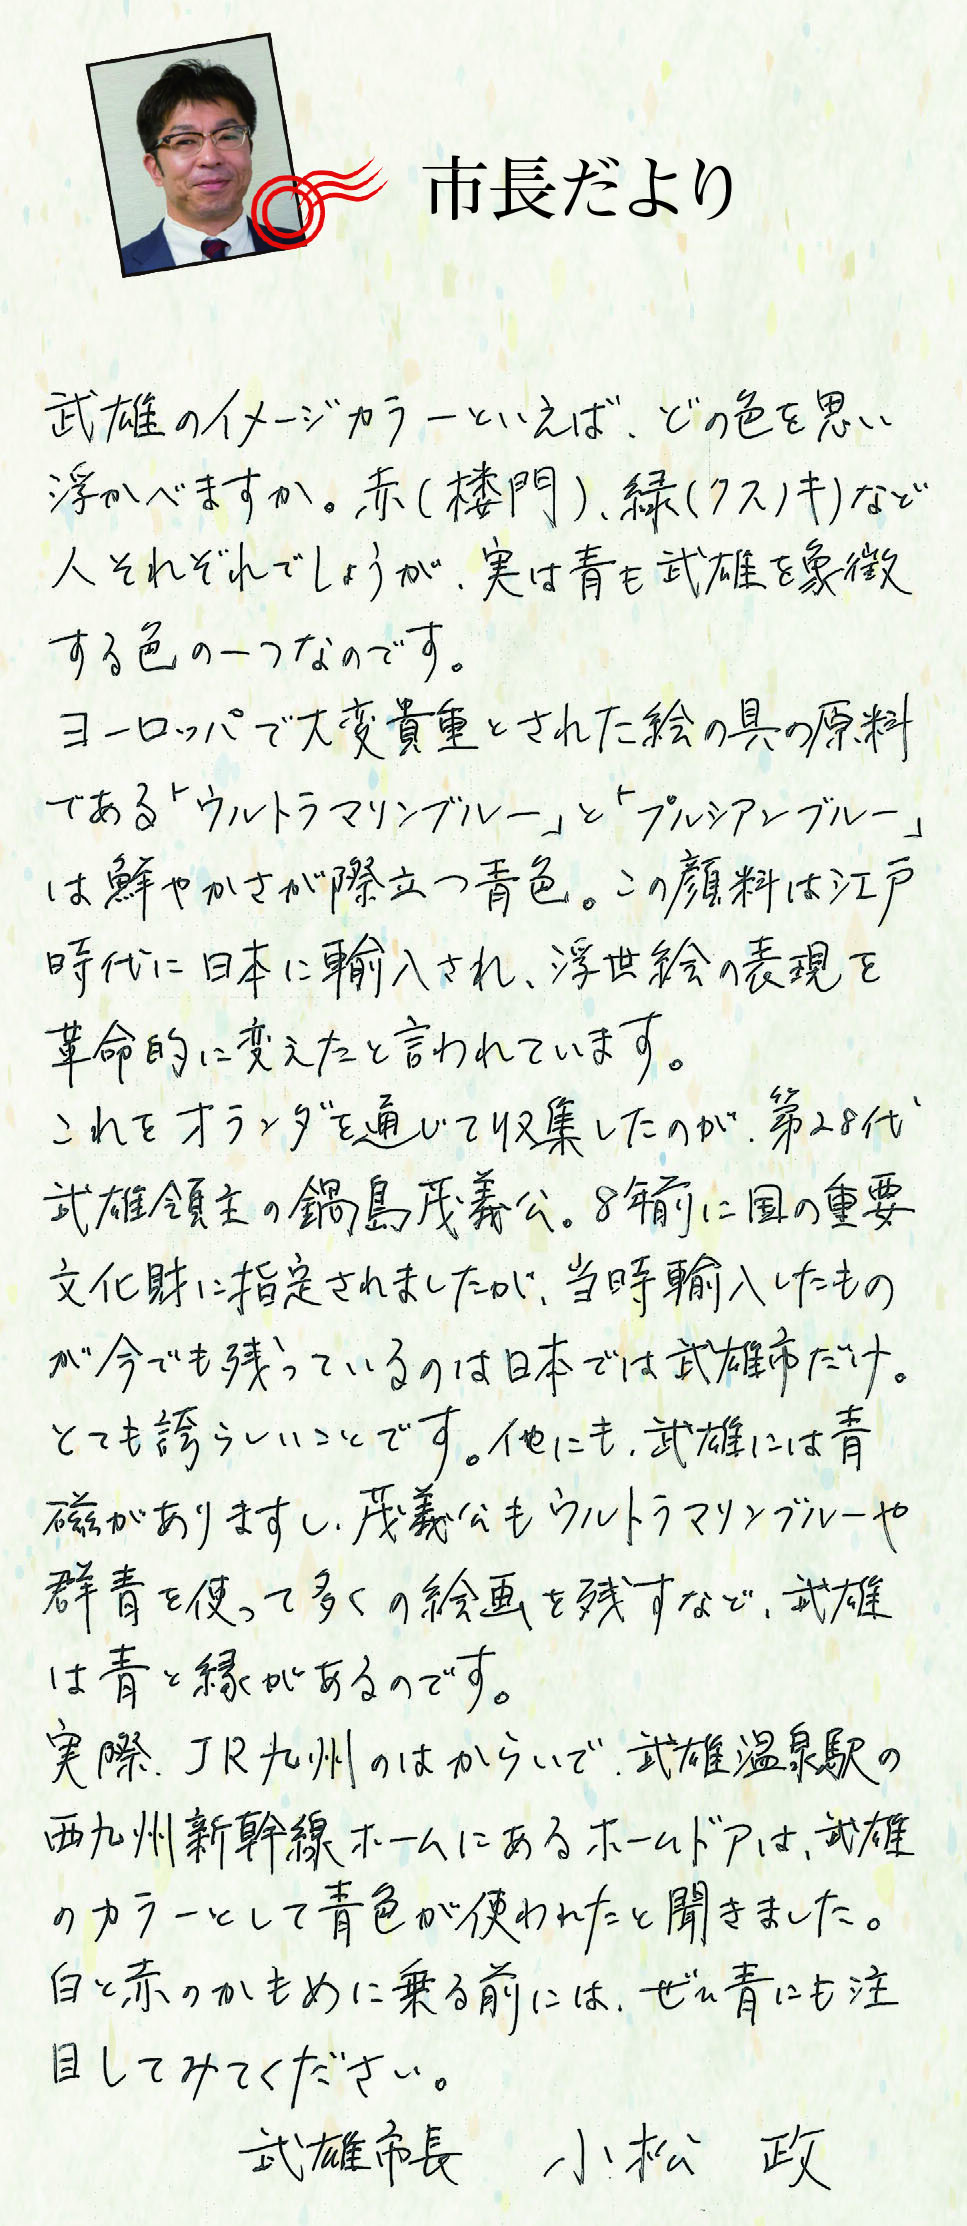 市長だより
武雄のイメージカラーといえば、どの色を思い
浮かべますか。赤(楼門)、緑(クスノキ)など
人それぞれでしょうが、実は青も武雄を象徴
する色の一つなのです。
ヨーロッパで大変貴重とされた絵の具の原料
である「ウルトラマリンブルー」と「プルシアンブルー」
は鮮やかさが際立つ青色。この顔料は江戸
時代に日本に輸入され、浮世絵の表現を
革命的に変えたと言われています。
これをオランダを通じて収集したのが、第28代
武雄領主の鍋島茂義公。8年前に国の重要
文化財に指定されましたが、当時輸入したもの
が今でも残っているのは日本では武雄市だけ。
とても誇らしいことです。他にも、武雄には青
磁がありますし、茂義公もウルトラマリンブルーや
群青を使って多くの絵画を残すなど、武雄
は青と縁があるのです。
実際、JR九州のはからいで、武雄温泉駅の
西九州新幹線ホームにあるホームドアは、武雄
のカラーとして青色が使われたと聞きました。
白と赤のかもめに乗る前には、ぜひ青にも注
目してみてください。
武雄市長 小松 政